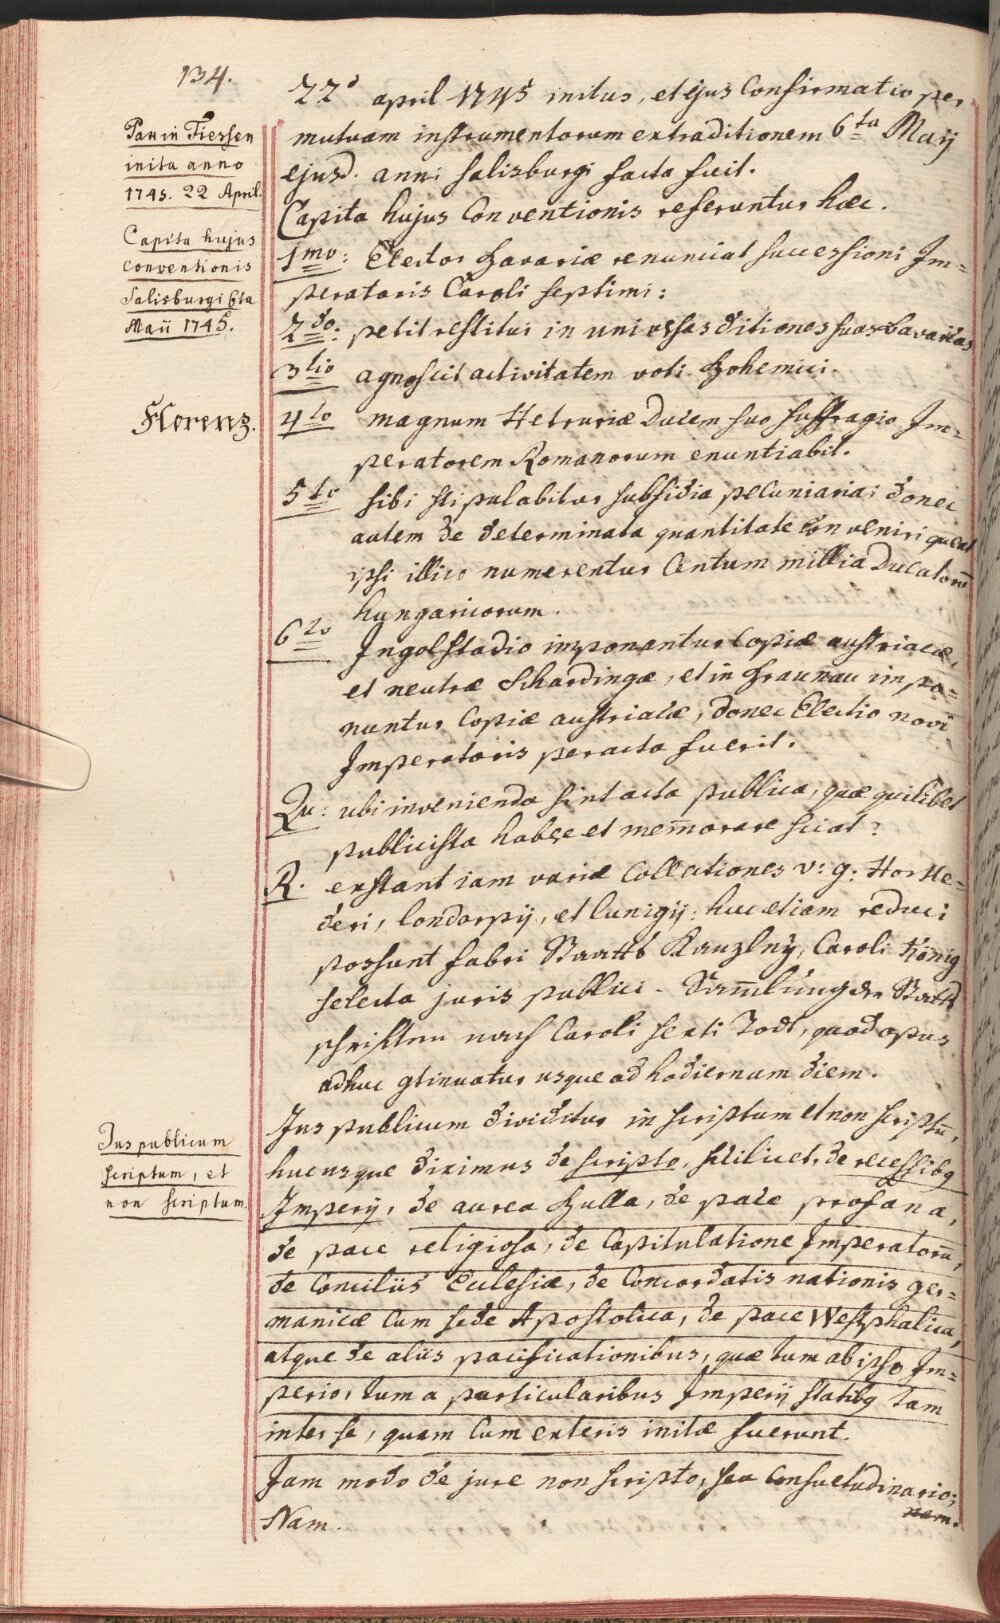 134.
Pax in Fiessen
inita anno
1745. 22 April.
Capita hujus
conventionis
Salisburgi 6ta
Maii 1745.
Florenz.
Jus publicum
scriptum, et
non scriptum.
22d april 1745 initus, et ejus Confirmatio per
mutuam instrumentorum extraditionem 6ta Maij
ejusd. anni Salisburgi facta fuit.
Capita hujus Conventionis referuntur haec.
1mo: Elector Bavariæ renunciat successioni Im=
peratoris Caroli septimi:
2do: petit restitui in universas ditiones suas bavaricas
3tio agnoscit activitatem voti Bohemici.
4to magnum Hetruriæ Ducem suo suffragio Im=
peratorem Romanorum enuntiabit.
5to sibi stipulabitur subsidia pecuniaria; donec
autem de determinata quantitate conveniri queat
ipsi illico numerentur Centum millia Ducatorū
hungaricorum.
6to Ingolstadio imponantur Copiæ austriacæ,
et neutræ Schardingæ, et in Braunau impo=
nuntur Copiæ austriacæ, donec Electio novi
Imperatoris peracta fuerit.
Qu: ubi invenienda sint acta publica, quæ quilibet
publicista habere et memorare sciat?
R. extant iam variæ Collectiones v: g: Hortle=
deri, londorpij, et lunigij; huc etiam reduci
possunt fabri Staatts Kanzlnÿ, Caroli König
selecta juris publici - Sam̅lung der Staats
schriften nach Caroli sexti Todt, quod opus
adhuc gtinuatur usque ad hodiernum diem.
Jus publicum dividitur in scriptum et non scriptū,
hucusque diximus de scripto, scilicet, de recessibq
Imperij, de aurea Bulla, de pace profana,
de pace religiosa, de Capitulatione Imperatorū,
de Conciliis Eclesiæ, de Concordatis nationis ger=
manicæ Cum sede Apostolica, de pace Westphalica,
atque de aliis pacificationibus, quæ tum ab ipso Im=
perio, tum a particularibus Imperij statibq tam
inter se, quam Cum exteris initæ fuerunt.
Jam modo de jure non scripto, seu Consuetudinario;
Nam. nam.